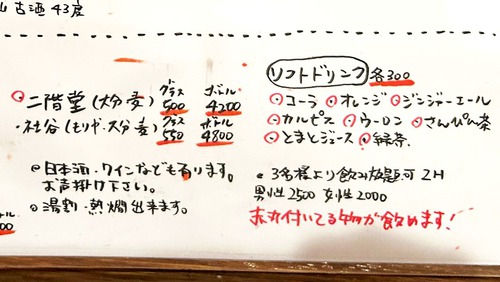 古酒 43度
グラス ボトル
二階堂(大分麦) 500 4200
グラス ボトル
(もりや.大分麦) 550 4800
◎日本酒・ワインなども有ります。
お声掛け下さい。
◎湯割・熱燗出来ます。
00
ソフトドリンク 各300
○コーラ ○オレンジ ○ジンジャーエール
○カルピス ○ウーロン ○さんぴん茶
○とまとジュース ○緑茶
◎3名様より飲み放題可 2H
男性2500 女性2000
赤丸付いてる物が飲めます!